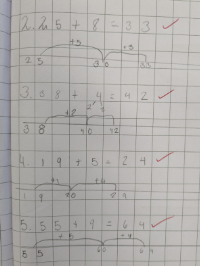 2. 25 + 8 = 33
+5 +3
25 30 33
3. 38 + 4 = 42
2 2
+2
38 40 42
4. 19 + 5 = 24
+1
19 20 24
5. 55 + 9 = 64
+5 +4
55 60 64